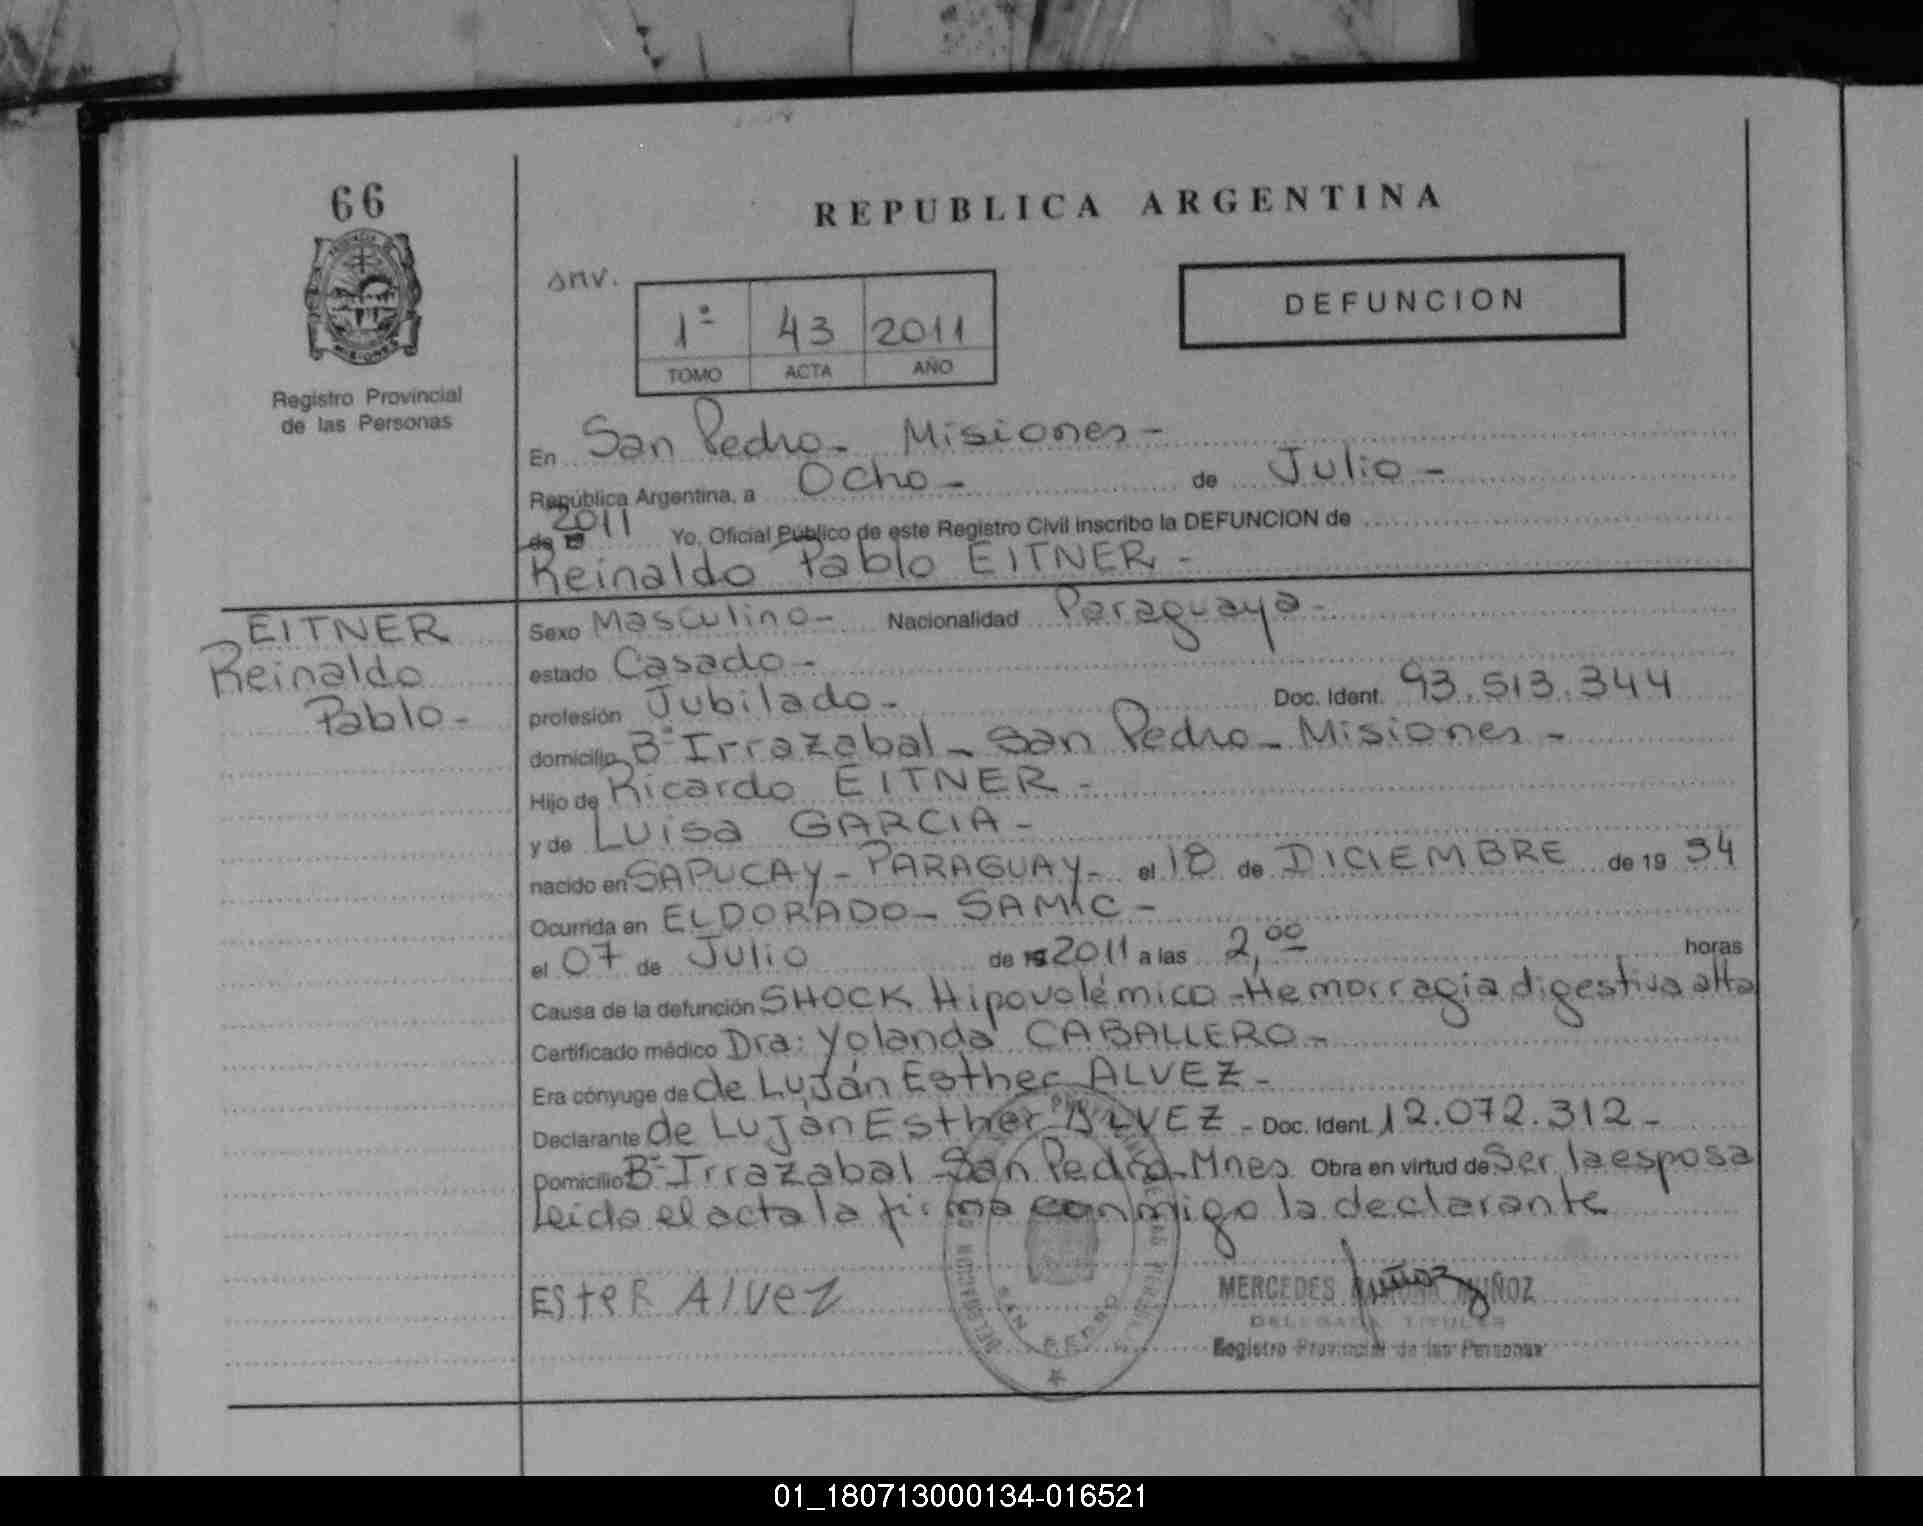 66
REPUBLICA ARGENTINA
snv.
1º 43 2011
TOMO ACTA AÑO
DEFUNCION
MISIONES
Registro Provincial
de las Personas
En San Pedro - Misiones -
República Argentina, a Ocho - de Julio -
de 19 2011 Yo, Oficial Público de este Registro Civil inscribo la DEFUNCION de
Reinaldo Pablo EITNER -
EITNER
Reinaldo
Pablo -
Sexo Masculino - Nacionalidad Paraguaya -
estado Casado -
profesión Jubilado - Doc. Ident. 93.513.344
domicilio Bº Irrazabal - San Pedro - Misiones -
Hijo de Ricardo EITNER -
y de Luisa GARCIA -
nacido en SAPUCAY - PARAGUAY - el 18 de DICIEMBRE de 19 34
Ocurrida en ELDORADO - SAMIC -
el 07 de Julio de 19 2011 a las 2,00 horas
Causa de la defunción SHOCK Hipovolémico - Hemorragia digestiva alta
Certificado médico Dra: Yolanda CABALLERO -
Era cónyuge de de Luján Esther ALVEZ -
Declarante de Luján Esther ALVEZ - Doc. Ident. 12.072.312 -
Domicilio Bº Irrazabal - San Pedro - Mnes. Obra en virtud de Ser la esposa
Leída el acta la firma conmigo la declarante
EstER AlveZ
MERCEDES RAMONA MUÑOZ
DELEGADA TITULAR
Registro Provincial de las Personas
SAN PEDRO
01_180713000134-016521